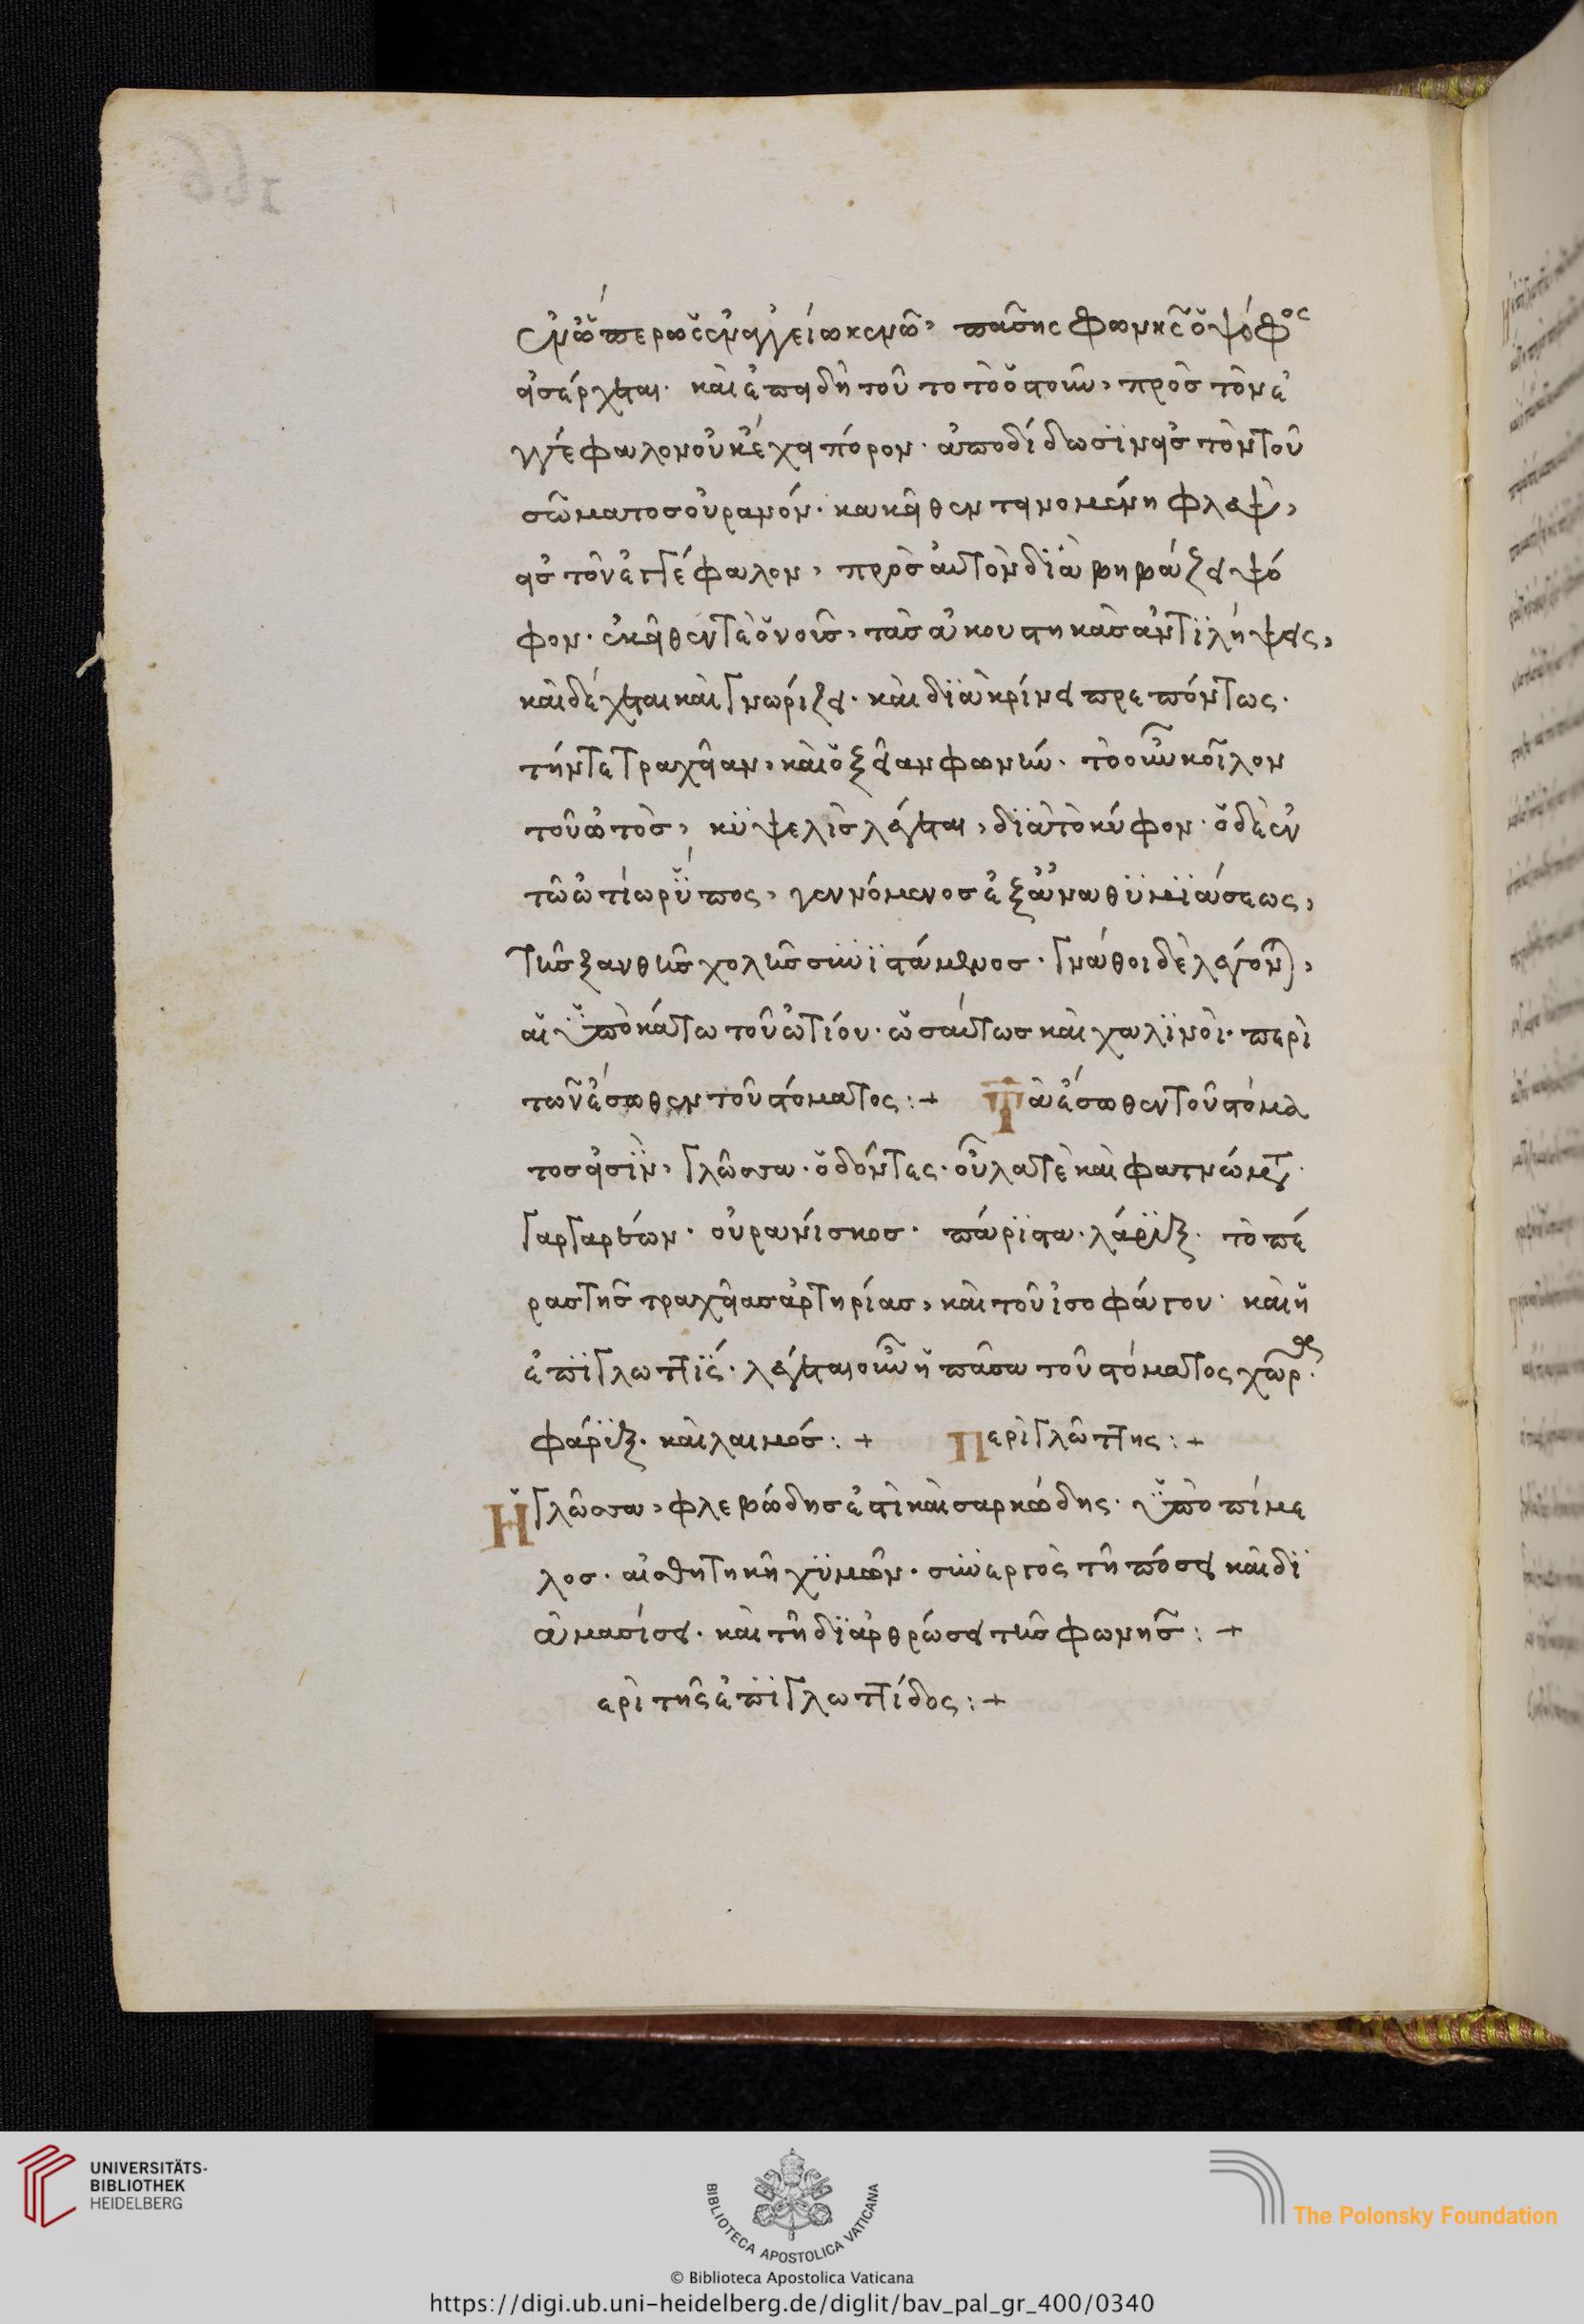 ἐν ᾧπερ ὡς ἐν ἀγγείω κενῶ, πάσης φωνῆς ὁ ψόφος
εἰσέρχεται. καὶ ἐπειδὴ τοῦτο τὸ ὀστοῦν, πρὸς τὸν ἐ
γκέφαλον οὐκ ἔχει πόρον. ἀποδίδωσϊν εἰς τὸν τοῦ
σώματος οὐρανόν. κακεῖθεν τεινομένη φλεψ,
εἰς τὸν ἐγκέφαλον, πρὸς αὐτὸν διαβηβάζει ψό
φον. ἐκεῖθεν τε ὁ νοῦς, τὰς ἀκουστηκὰς ἀντϊλήψεις,
καὶ δέχεται καὶ γνωρίζει. καὶ δϊακρίνει πρεπόντως.
τήν τε τραχεῖαν, καὶ ὀξεῖαν φωνήν. τὸ οὖν κοῖλον
τοῦ ὠτὸς, κϋψελὶς λέγεται, δϊὰ τὸ κύφον. ὁ δὲ ἐν
τῶ ὠτίω ῥϋπος, γεννόμενος ἐξ ἀναθϋμϊάσεως,
τῆς ξανθῆς χολῆς συνϊστάμενος. γνάθοι δὲ λέγονται,
αἱ ϋποκάτω τοῦ ὠτίου. ὡσαύτως καὶ χαλϊνοὶ. περὶ
τῶν ἔσωθεν τοῦ στόματος :+ Τὰ ἔσωθεν τοῦ στόμα
τος εἰσϊν, γλῶσσα. ὀδόντες. οὖλα τὲ καὶ φατνώματα.
γαργαρεών. οὐρανίσκος. πάρϊστα. λάρϋγξ. τὸ πέ
ρας τῆς τραχείας ἀρτηρίας, καὶ τοῦ ἰσοφάγου. καὶ ἡ
ἐπϊγλωττϊς. λέγεται οὖν ἡ πᾶσα τοῦ στόματος χώρα.
φάρϋγξ. καὶ λαιμός :+ Περὶ γλώττης :+
Ἡ γλῶσσα, φλεβώδης ἐστὶ καὶ σαρκώδης. ϋποπίμε
λος. αἰσθητηκὴ χϋμῶν. συνεργὸς τῆ πόσει καὶ δϊ
αμασίσει. καὶ τῆ δϊαρθρώσει τῆς φωνῆς :+
ερὶ τῆς ἐπϊγλωττίδος :+
UNIVERSITÄTS-
BIBLIOTHEK
HEIDELBERG
BIBLIOTECA APOSTOLICA VATICANA
The Polonsky Foundation
© Biblioteca Apostolica Vaticana
https://digi.ub.uni-heidelberg.de/diglit/bav_pal_gr_400/0340